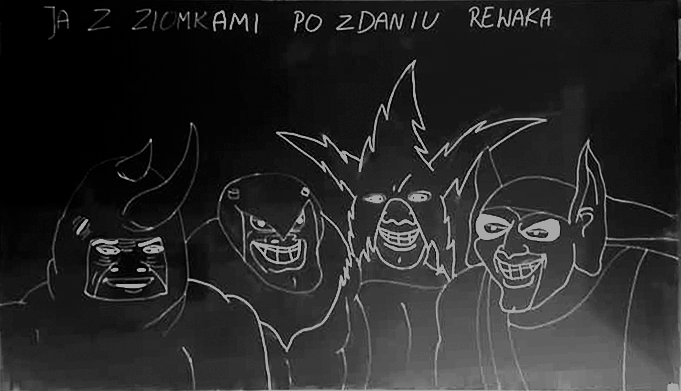 JA Z ZIOMKAMI PO ZDANIU REWAKA